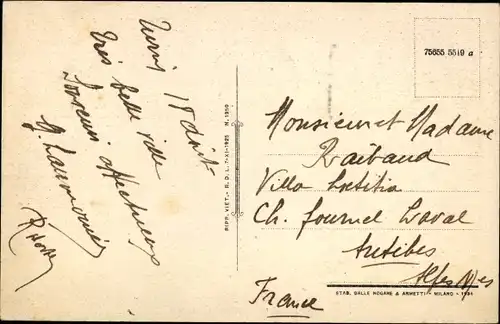 Turin 18 Août
Très belle ville
Souvenir affectueux
75655 5519 a
RIPR. VIET. - R. D. L. 7-XI-1925 N. 1950
Monsieur et Madame
Raibaud
Villa Loetitia
Ch. Fournel Laval
Antibes
Alpes Mes
France
STAB. DALLE NOGARE & ARMETTI - MILANO - 1934